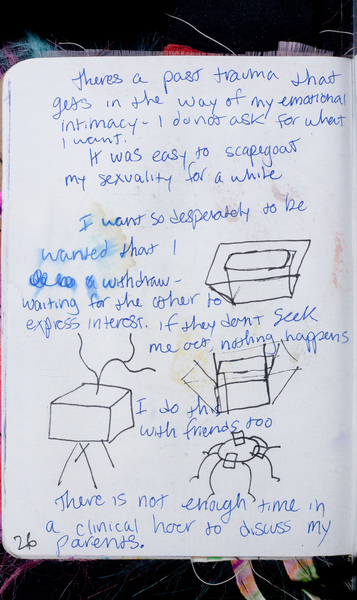 Theres a past trauma that
gets in the way of my emotional
intimacy - I do not ask for what
I want.
It was easy to scapegoat
my sexuality for a while
I want so desperately to be
wanted that I
withdraw -
waiting for the other to
express interest. if they dont seek
me out, nothing happens
I do this
with friends too
There is not enough time in
a clinical hour to discuss my
parents.
26